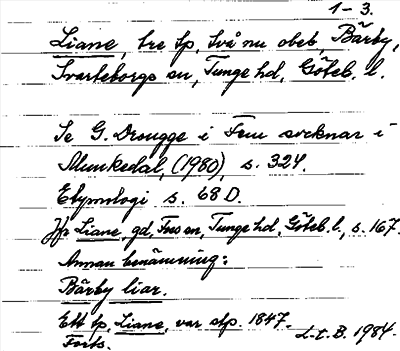 1-3.
Liane tre tp, två nu obeb, Bärby,
Svarteborgs sn, Tunge hd, Göteb. l.
Se G. Drougge i Fem socknar i
Munkedal, (1980), s. 324.
Etymologi s. 68 D.
Jfr Liane, gd, Foss sn, Tunge hd, Göteb. l., s. 167.
Annan benämning:
Bärby liar.
Ett tp, Liane, var stp. 1847.
Forts.
L.t.B. 1984.